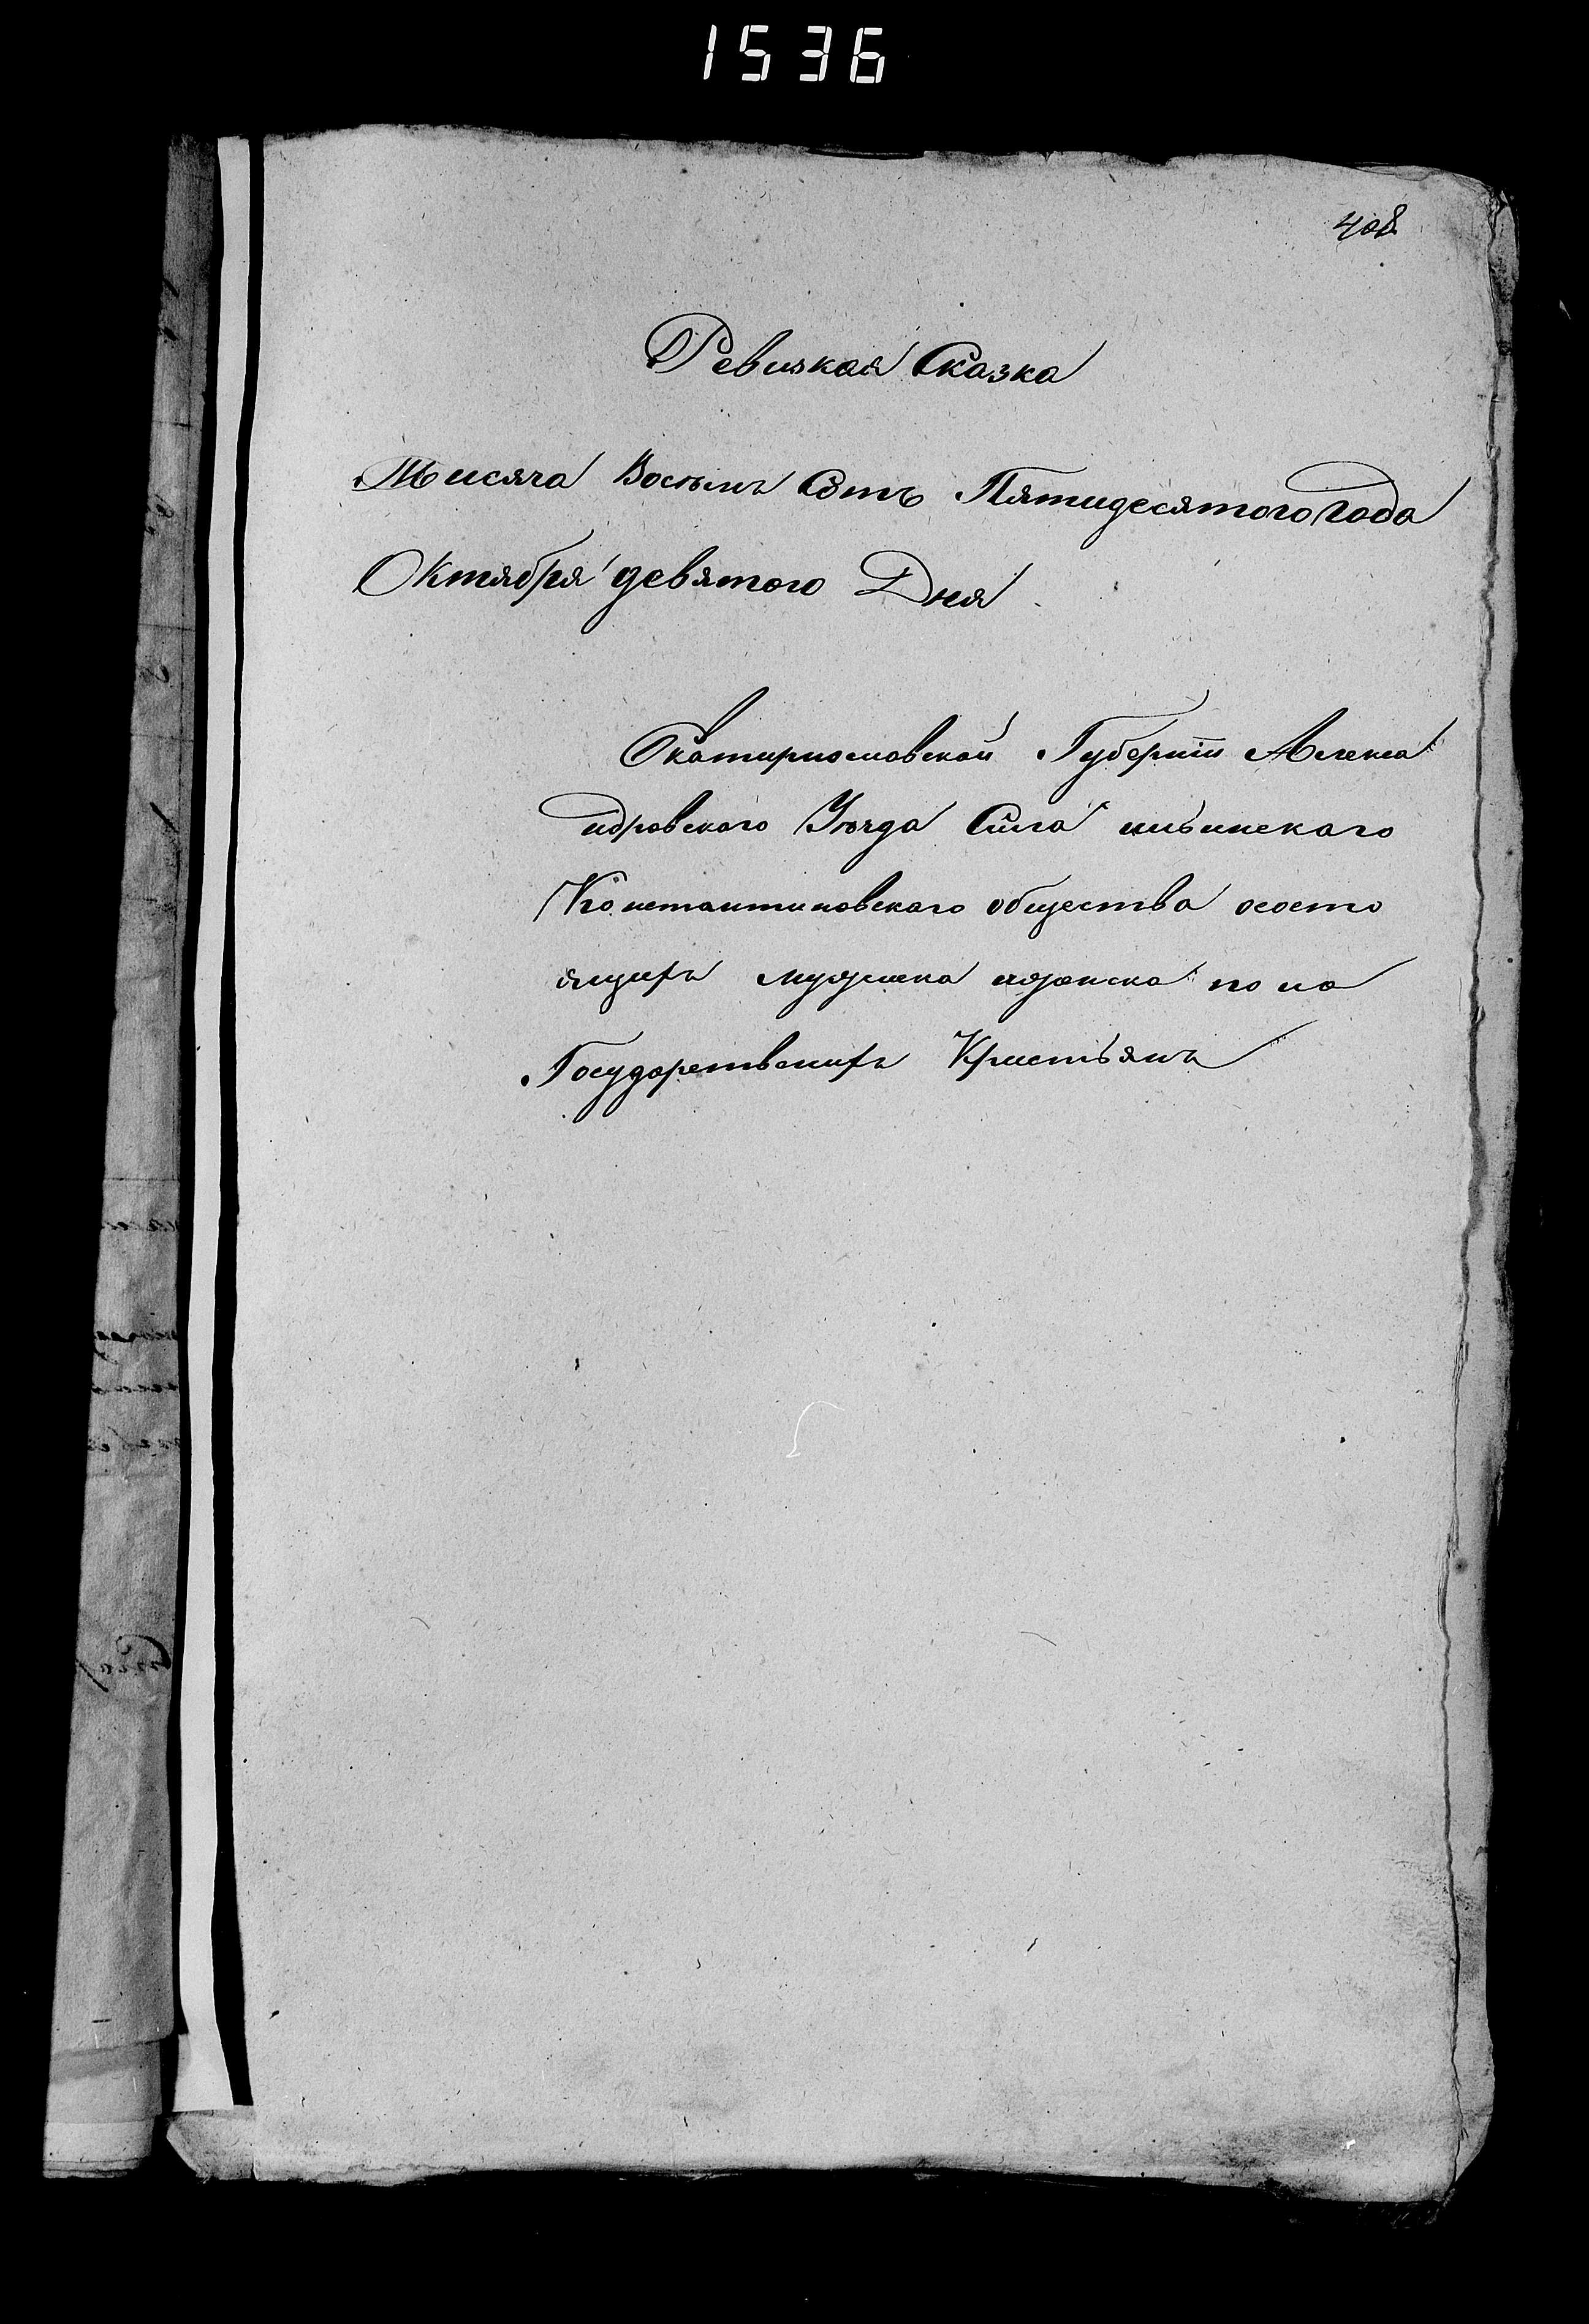 1536
408
Ревизкая Сказка
Тисяча Восемь Сотъ Пятидесятого Года
Октября девятого Дня
Екатиринославской Губернiи Алекса
ндровского Уезда Сила
Константиновскаго общества ососто
ящихъ мужеска иженска пола
Государственихъ Кристьянъ